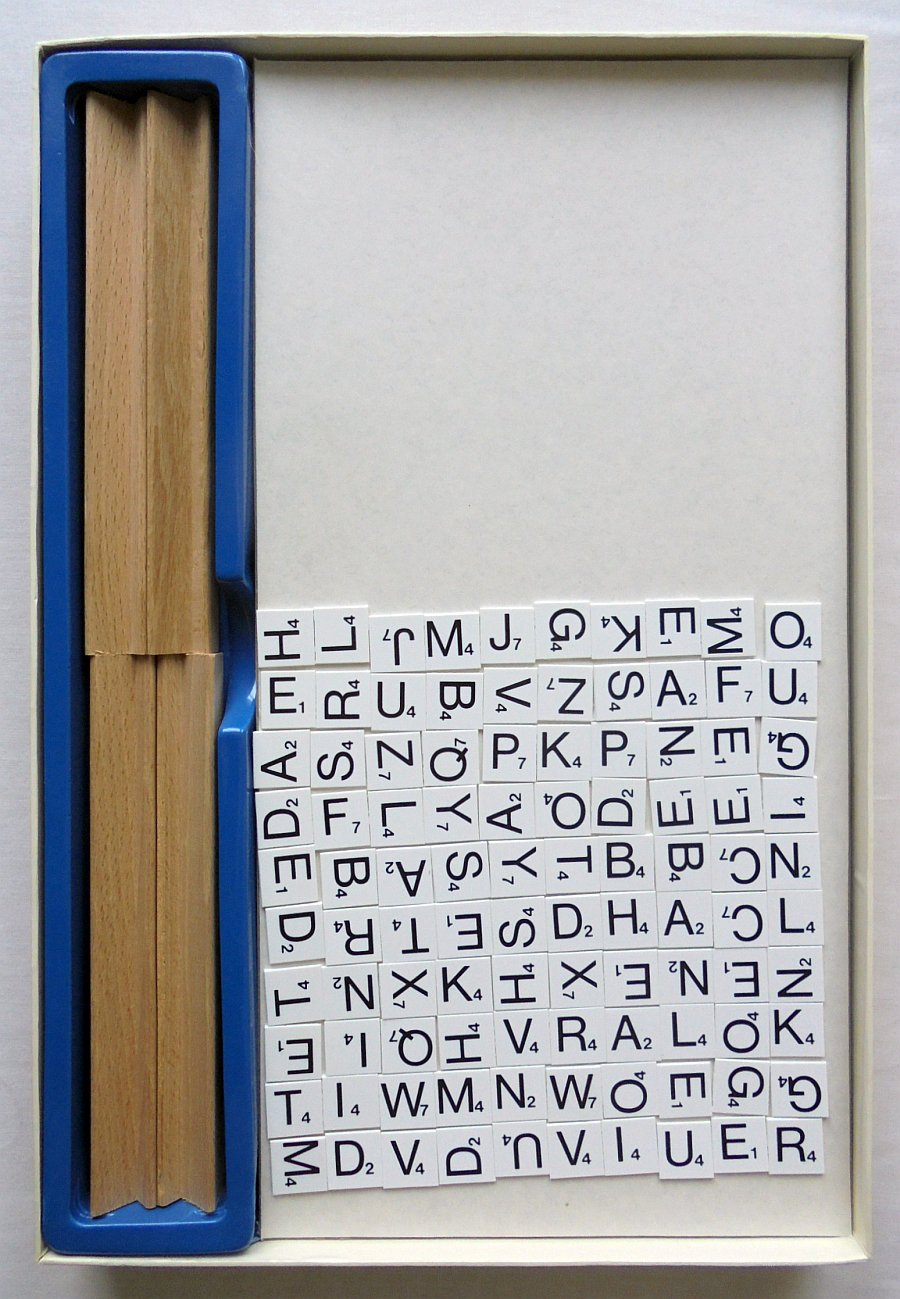 H4 L4 J7 M4 J7 G4 K4 E1 M4 O4
E1 R4 U4 B4 V4 Z7 S4 A2 F7 U4
A2 S4 Z7 Q7 P7 K4 P7 N2 E1 G4
D2 F7 L4 Y7 A2 O4 D2 E1 E1 I4
E1 B4 A2 S4 Y7 T4 B4 B4 C7 N2
D2 R4 T4 E1 S4 D2 H4 A2 C7 L4
T4 N2 X7 K4 H4 X7 E1 N2 E1 N2
E1 I4 Q7 H4 V4 R4 A2 L4 O4 K4
T4 I4 W7 M4 N2 W7 O4 E1 G4 G4
M4 D2 V4 D2 U4 V4 I4 U4 E1 R4